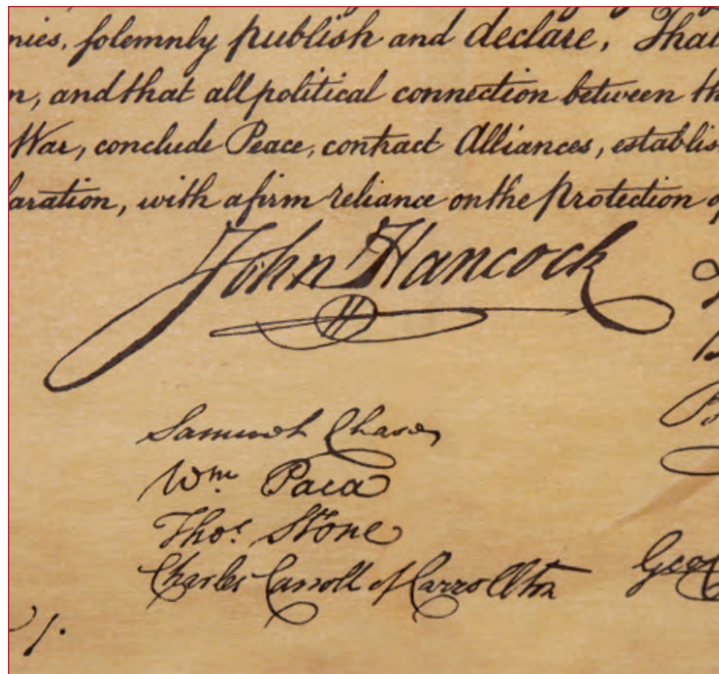 nies, solemnly publish and declare, That
n, and that all political connection between th
War, conclude Peace, contract Alliances, establis
laration, with a firm reliance on the Protection of
John Hancock
Samuel Chase
Wm. Paca
Thos. Stone
Charles Carroll of Carrollton
Geo